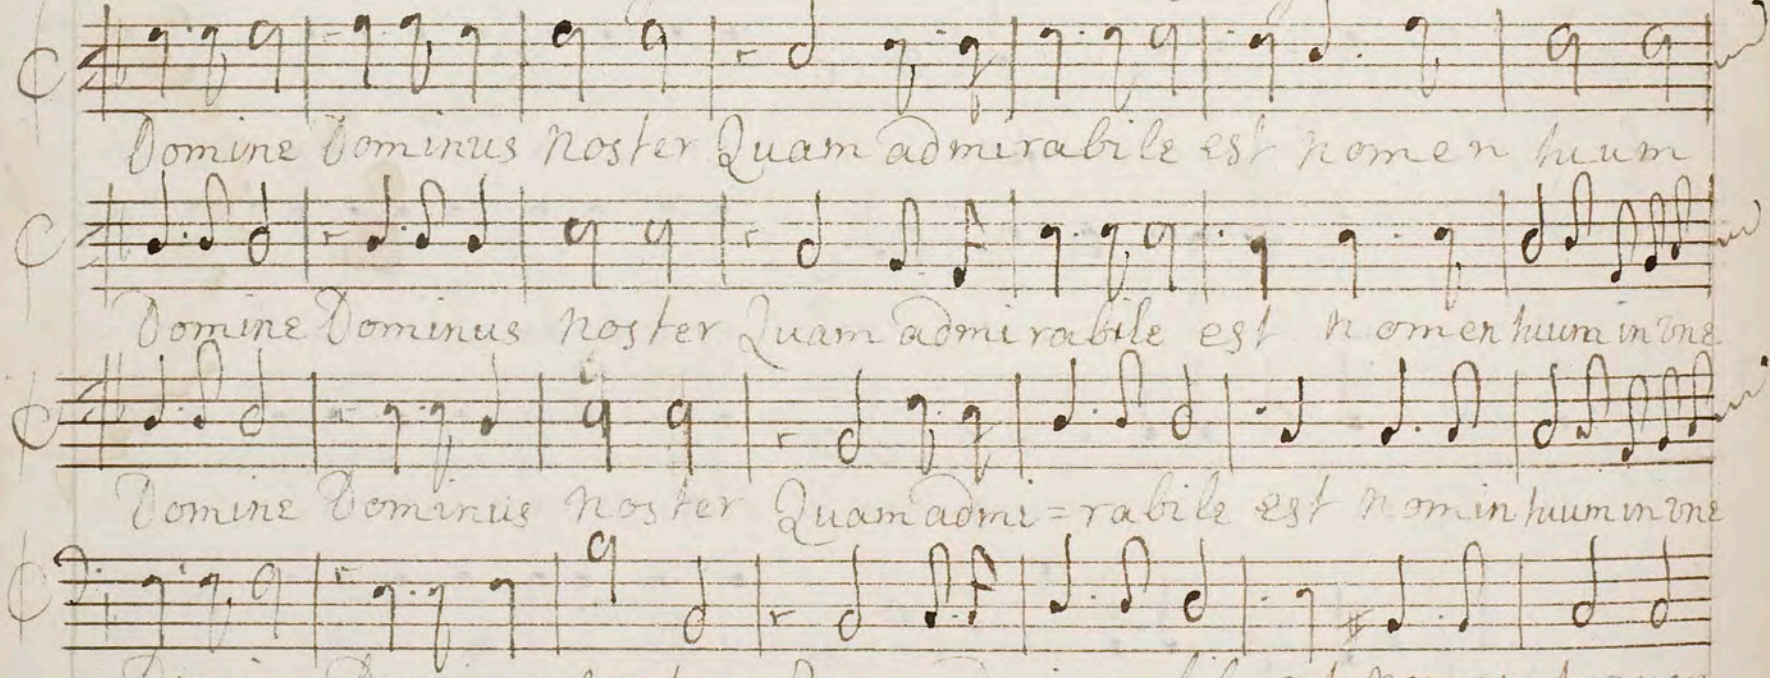 Domine Dominus noster Quam admirabile est nomen tuum
Domine Dominus noster Quam admirabile est nomen tuum in vne
Domine Dominus noster Quam admi=rabile est nomin tuum in vne